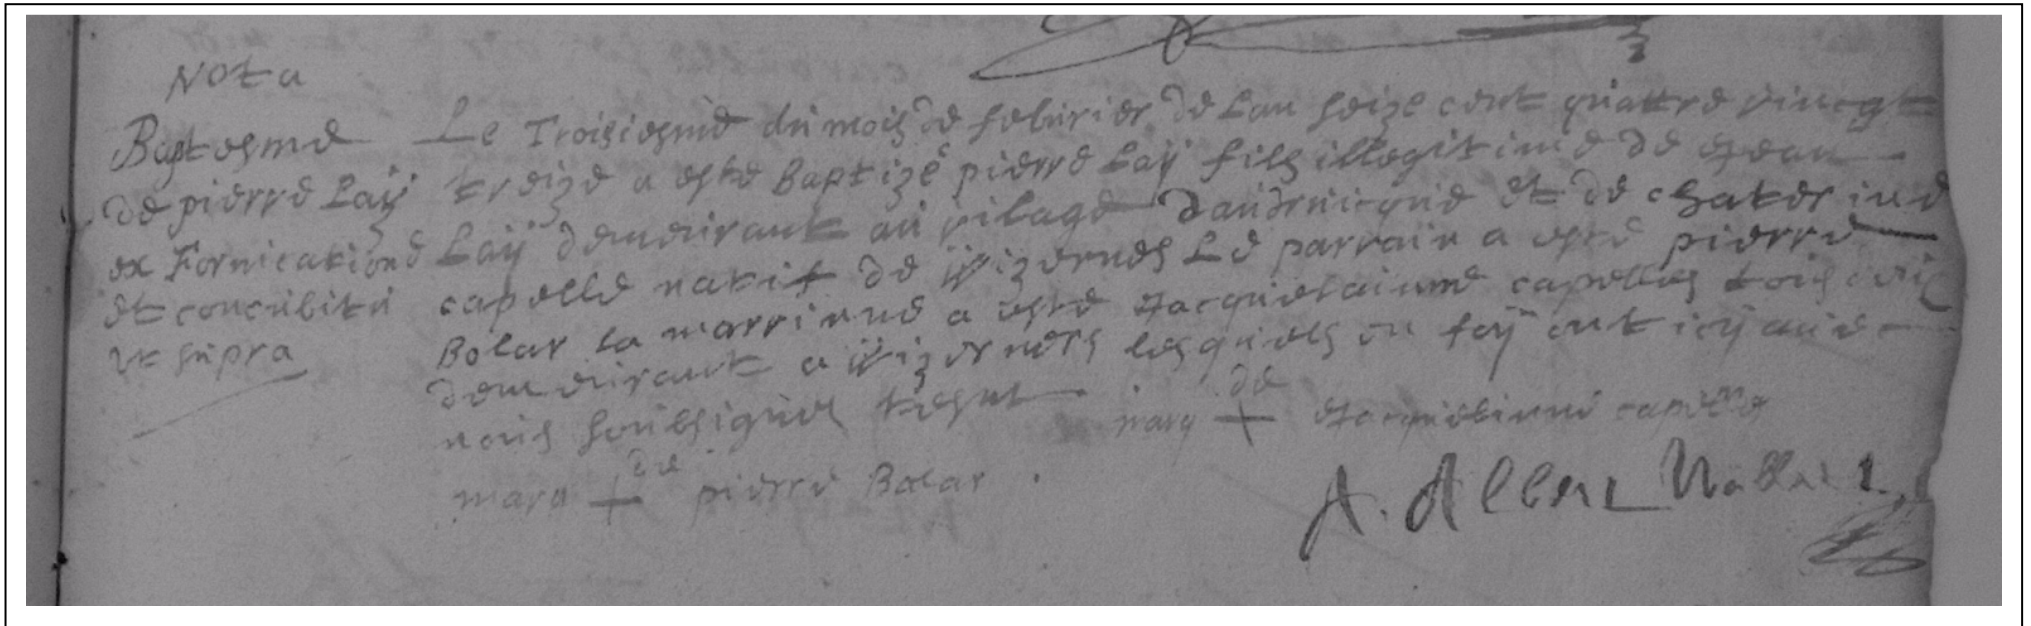 Nota
Baptesme
de pierre Laÿ
ex Fornicatione
et concubitu
ut supra
Le Troisiesme du mois de febvrier de Lan seize cent quattre vincgt
treize a esté Baptizé pierre Laÿ fils illegitime de Jean
Laÿ demeurant au vilage Daudruicque et de Chaterine
capelle natif de Wizernes Le parrain a esté pierre
Bolar La marrinne a esté Jacquelainne capelles tous deux
demeurant a Wizernes lesquels en foÿ ont icÿ avec
nous soubsigné
marq + de Jacquelinne capelle
marq + de pierre Bolar
A. Allen